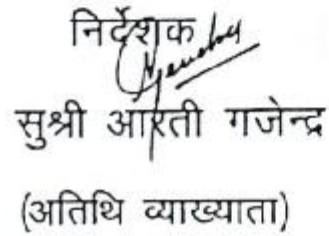 निर्देशक
सुश्री आरती गजेन्द्र
(अतिथि व्याख्याता)